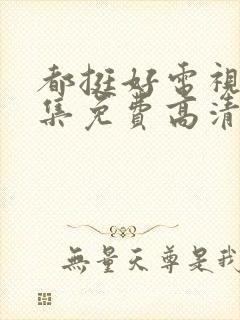 都挺好電視
集免費高清
無量天尊是我